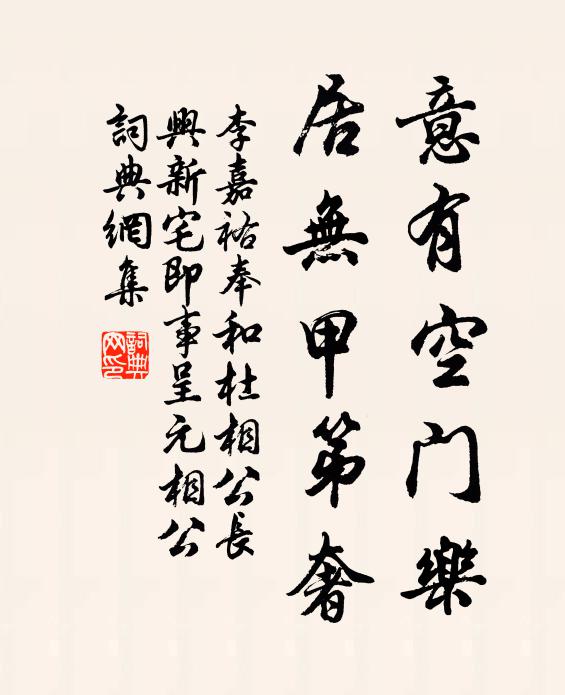 意有空門樂
居無甲第奢
李嘉祐奉和杜相公長
興新宅即事呈元相公
詞典網集
詞典網印